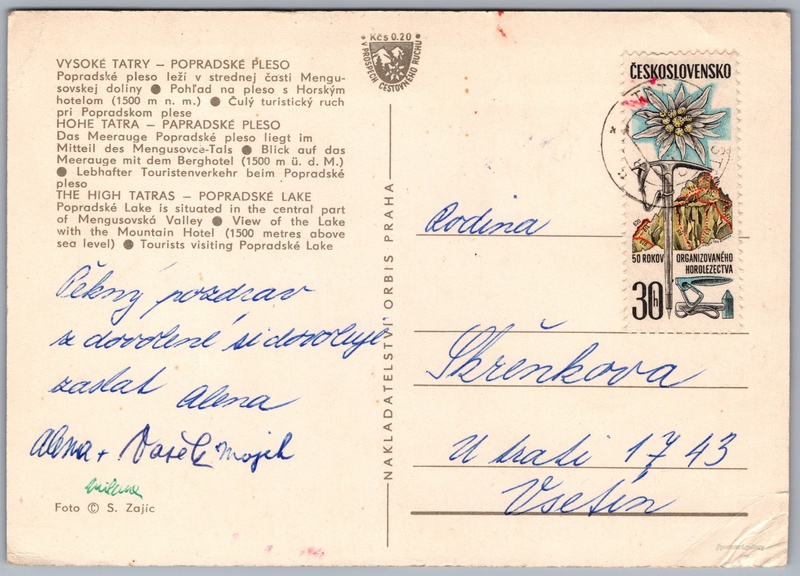 VYSOKÉ TATRY — POPRADSKÉ PLESO
Popradské pleso leží v strednej časti Mengu-
sovskej doliny ● Pohľad na pleso s Horským
hotelom (1500 m n. m.) ● Čulý turistický ruch
pri Popradskom plese
HOHE TATRA — PAPRADSKÉ PLESO
Das Meerauge Popradské pleso liegt im
Mitteil des Mengusovce-Tals ● Blick auf das
Meerauge mit dem Berghotel (1500 m ü. d. M.)
● Lebhafter Touristenverkehr beim Popradské
pleso
THE HIGH TATRAS — POPRADSKÉ LAKE
Popradské Lake is situated in the central part
of Mengusovská Valley ● View of the Lake
with the Mountain Hotel (1500 metres above
sea level) ● Tourists visiting Popradské Lake
Pěkný pozdrav
z dovolené si dovoluje
zaslat Alena
Alena + Vašek
Foto © S. Zajíc
NAKLADATELSTVÍ ORBIS PRAHA
Kčs 0.20
V PROSPĚCH CESTOVNÉHO RUCHU
ČESKOSLOVENSKO
50 ROKOV ORGANIZOVANÉHO
HOROLEZECTVA
30h
Rodina
Skřenkova
U trati 1743
Vsetín